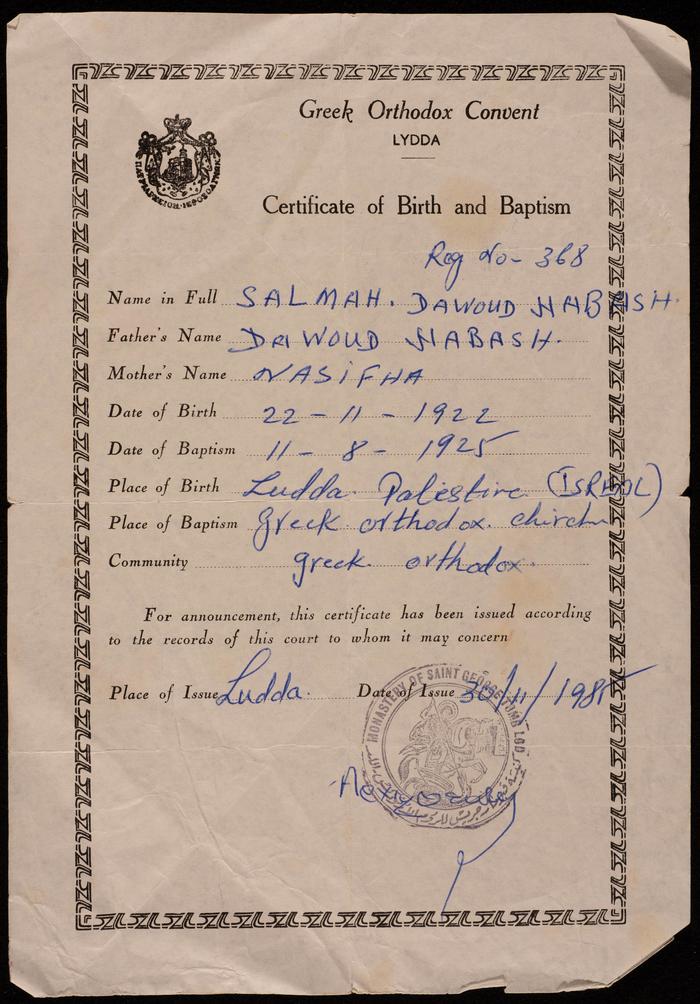 Greek Orthodox Convent
LYDDA
Certificate of Birth and Baptism
Reg No - 368
Name in Full SALMAH. DAWOUD HABASH.
Father's Name DAWOUD HABASH.
Mother's Name NASIFHA
Date of Birth 22 - 11 - 1922
Date of Baptism 11 - 8 - 1925
Place of Birth Ludda. Palestine (ISREAL)
Place of Baptism Greek orthodox. church
Community greek. orthodox.
For announcement, this certificate has been issued according
to the records of this court to whom it may concern
Place of Issue Ludda. Date of Issue 30/11/1985
MONASTERY OF SAINT GEORGE TOMB LOD